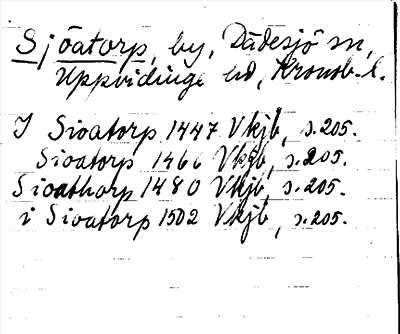 Sjöatorp, by, Dädesjö sn,
Uppvidinge hd, Kronob. l.
I Sioatorp 1447 Vkjb, s. 205.
Sioatorp 1466 Vkjb, s. 205.
Sioathorp 1480 Vkjb, s. 205.
i Sioatorp 1502 Vkjb, s. 205.